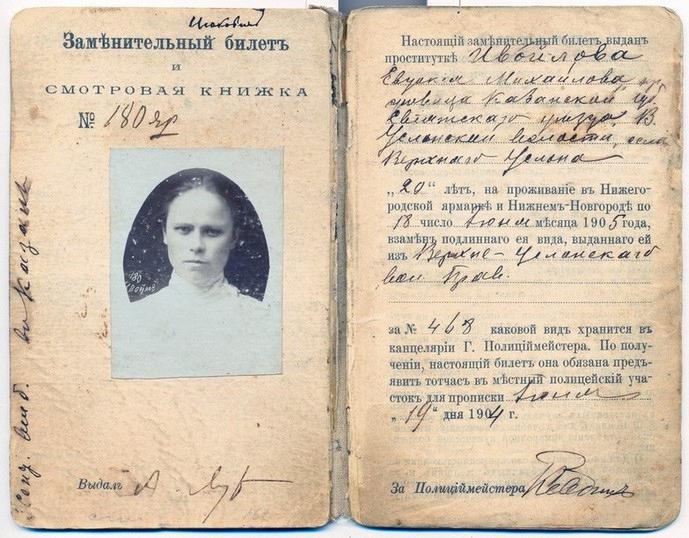 Замѣнительный билетъ
и
СМОТРОВАЯ КНИЖКА
№ 180 яр
180
Выдалъ
Настоящій замѣнительный билетъ выданъ
проституткѣ Ивойлова
Евдокія Михайлова
Казанской губ.
Свіяжскаго уѣзда, В.
Услонской волости, села
Верхняго Услона
„20" лѣтъ, на проживаніе въ Нижего-
родской ярмаркѣ и Нижнемъ-Новгородѣ по
18 число іюня мѣсяца 1905 года,
взамѣнъ подлиннаго ея вида, выданнаго ей
изъ Верхне-Услонскаго
вол. Прав.
за № 468 каковой видъ хранится въ
канцеляріи Г. Полиціймейстера. По полу-
ченіи, настоящій билетъ она обязана предъ-
явить тотчасъ въ мѣстный полицейскій уча-
стокъ для прописки іюня
„19" дня 1904 г.
За Полиціймейстера